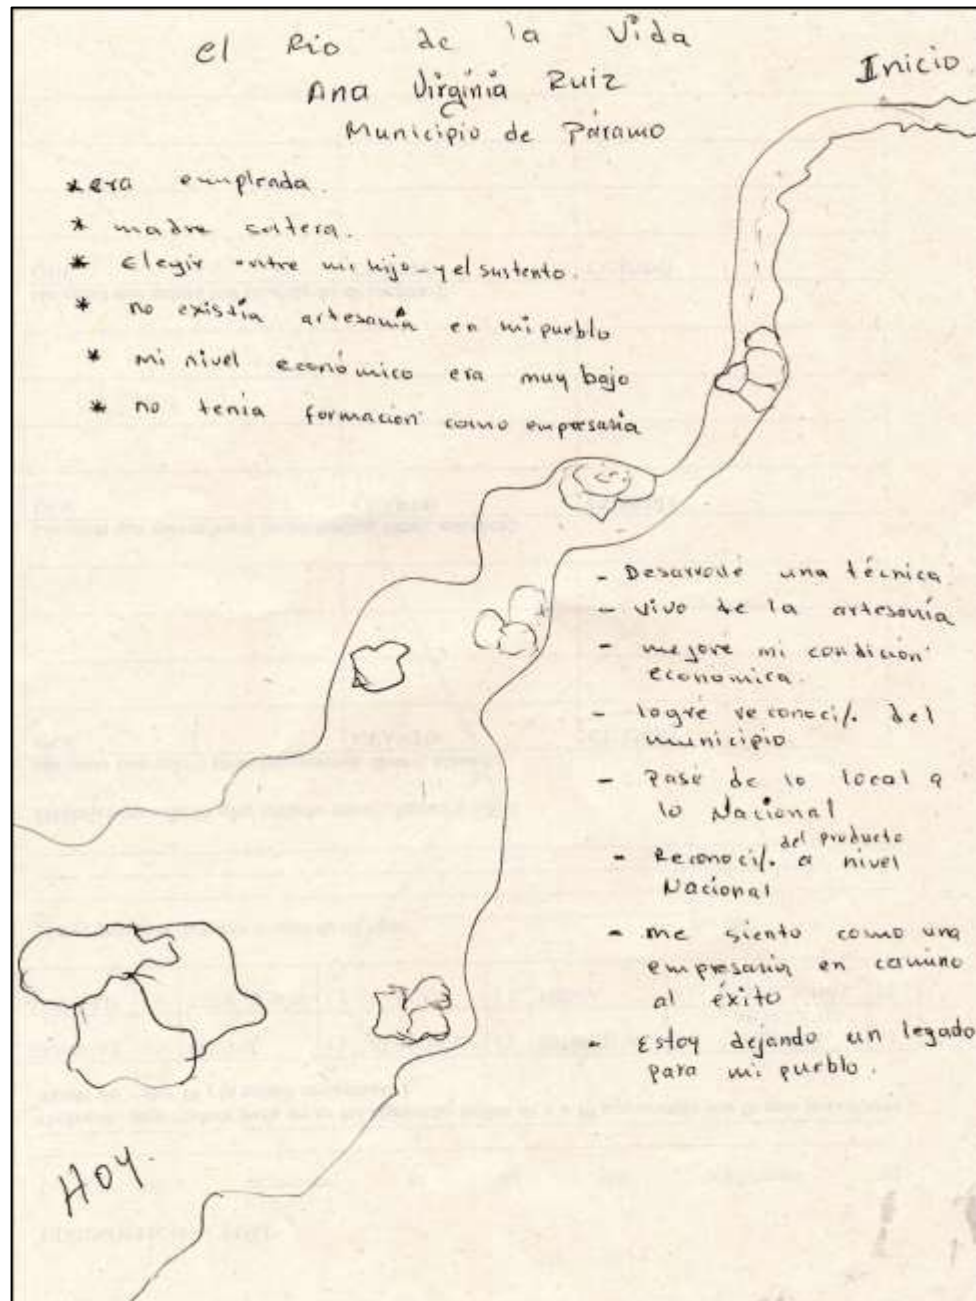 el Rio de la Vida
Ana Virginia Ruiz
Municipio de Páramo
Inicio
* era empleada.
* madre soltera.
* Elegir entre mi hijo y el sustento.
* no existía artesanía en mi pueblo
* mi nivel económico era muy bajo
* no tenia formación como empresaria
- Desarrollé una técnica
- vivo de la artesanía
- mejoré mi condición
economica.
- logré reconoci/. del
municipio
- Pasé de lo local a
lo Nacional
del producto
- Reconoci/. a nivel
Nacional
- me siento como una
empresaria en camino
al éxito
- Estoy dejando un legado
para mi pueblo.
HOY.